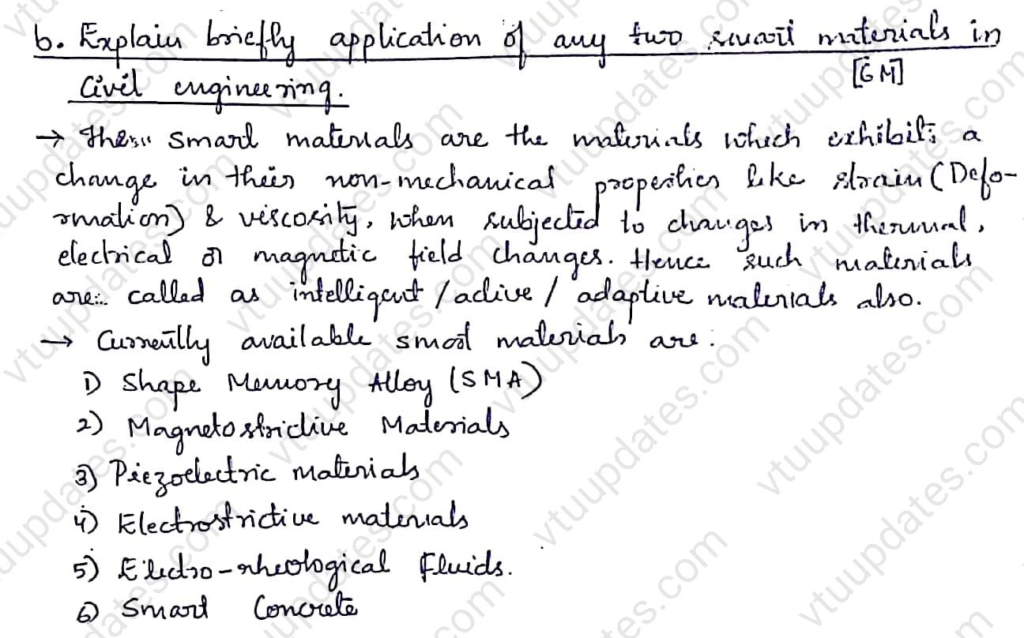 b. Explain briefly application of any two smart materials in
Civil engineering. [6M]
→ These smard materials are the materials which exhibits a
change in their non-mechanical properties like strain (Defo-
rmation) & viscosity, when subjected to changes in thermal,
electrical or magnetic field changes. Hence such materials
are called as intelligent /active / adaptive materials also.
→ Currently available smart materials are :
1) Shape Memory Alloy (SMA)
2) Magnetostrictive Materials
3) Piezoelectric materials
4) Electrostrictive materials
5) Electro-rheological Fluids.
6) Smart Concrete
vtuupdates.com